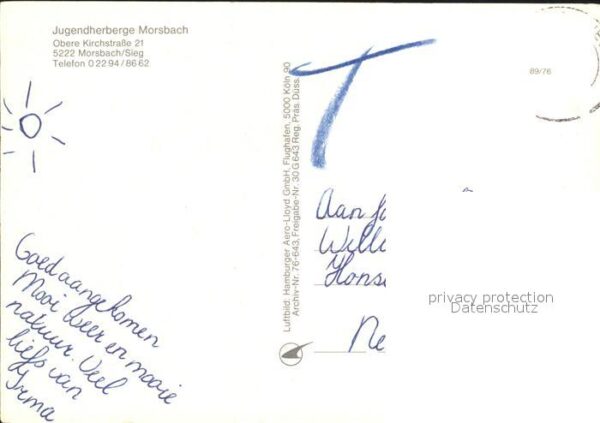 Jugendherberge Morsbach
Obere Kirchstraße 21
5222 Morsbach/Sieg
Telefon 0 22 94 / 86 62
Goed aangekomen
Mooi weer en mooie
natuur. Veel
liefs van
Irma
Luftbild: Hamburger Aero-Lloyd GmbH, Flughafen, 5000 Köln 90
Archiv-Nr. 76-643, Freigabe-Nr. 30 G 643 Reg. Präs. Düss.
T
89/76
Aan
privacy protection
Datenschutz